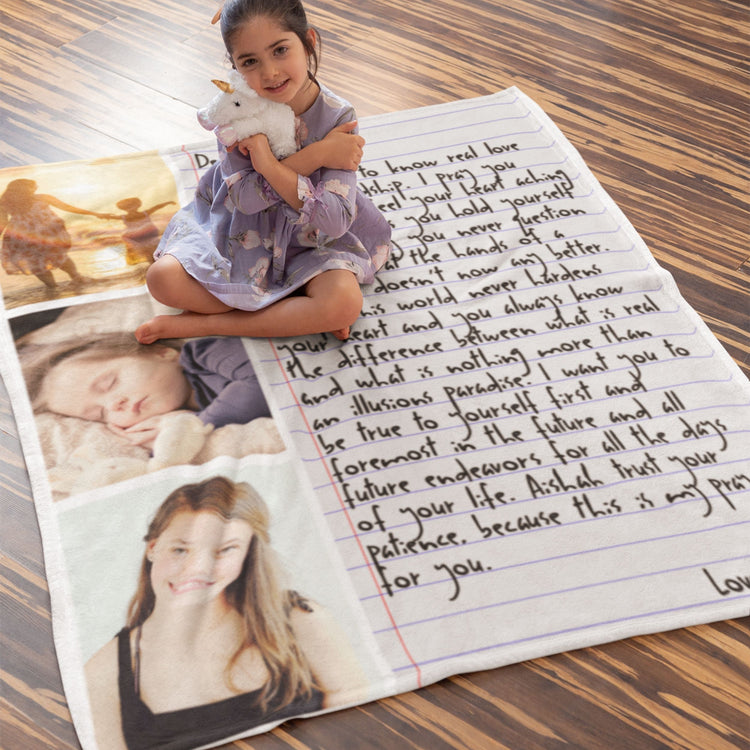 D
to know real love
dship. I pray you
eel your heart aching
you hold yourself
you never question
the hands of a
doesn't now any better.
his world never hardens
your heart and you always know
the difference between what is real
and what is nothing more than
an illusions paradise. I want you to
be true to yourself first and
foremost in the future and all
future endeavors for all the days
of your life. Aishah trust your
patience, because this is my pray
for you.
Lov